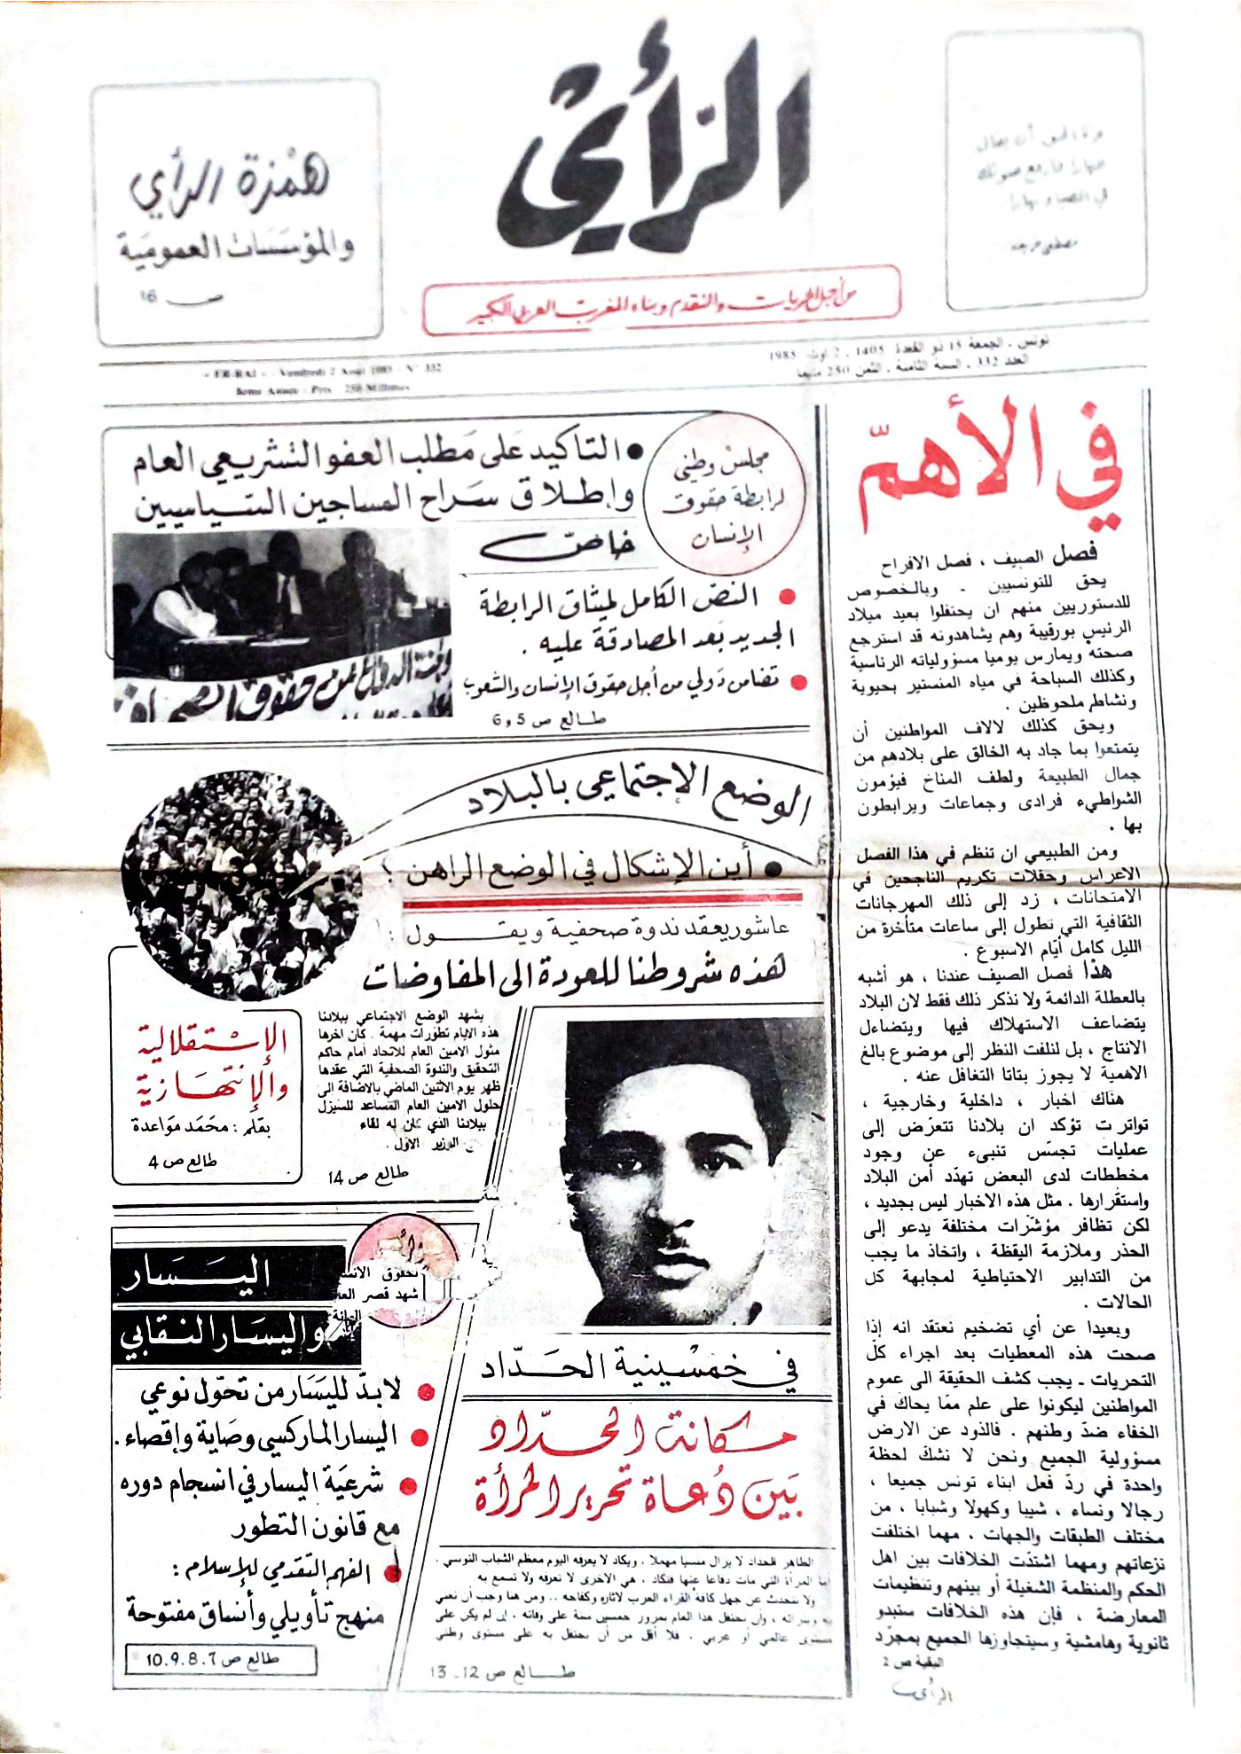 الرأي
همزة الرأي
والمؤسسات العمومية
ص 16
من أجل الحريات والتقدم وبناء المغرب العربي الكبير
تونس ـ الجمعة 15 ذو القعدة 1405 ـ 2 اوت 1985
العدد 332 ـ السنة الثامنة ـ الثمن 250 مليما
« ER-RAI » - Vendredi 2 Août 1985 - N° 332
8eme Année - Prix 250 Millimes
مجلس وطني
لرابطة حقوق
الإنسان
● التاكيد على مطلب العفو التشريعي العام
وإطلاق سراح المساجين السياسيين
خاص
● النص الكامل لميثاق الرابطة
الجديد بعد المصادقة عليه .
● تضامن دولي من أجل حقوق الإنسان والشعوب
طالع ص 5 و 6
الوضع الإجتماعي بالبلاد
● أين الإشكال في الوضع الراهن ؟
عاشور يعقد ندوة صحفية ويقول :
هذه شروطنا للعودة الى المفاوضات
يشهد الوضع الاجتماعي ببلادنا
هذه الايام تطورات مهمة . كان اخرها
مثول الامين العام للاتحاد أمام حاكم
التحقيق والندوة الصحفية التي عقدها
ظهر يوم الاثنين الماضي بالاضافة الى
حلول الامين العام المساعد للسيزل
ببلادنا الذي كان له لقاء
الوزير الاول .
طالع ص 14
الإستقلالية
والإنتهازية
بقلم : محمد مواعدة
طالع ص 4
اليسار
واليسار النقابي
● لابد لليسار من تحول نوعي
● اليسار الماركسي وصاية وإقصاء .
● شرعية اليسار في انسجام دوره
مع قانون التطور
● الفهم التقدمي للإسلام :
منهج تأويلي وأنساق مفتوحة
طالع ص 7 .8 .9 .10
في خمسينية الحداد
مكانة الحداد
بين دعاة تحرير المرأة
الطاهر الحداد لا يزال منسيا مهملا . ويكاد لا يعرفه اليوم معظم الشباب التونسي .
أما المرأة التي مات دفاعا عنها فتكاد ، هي الاخرى لا تعرفه ولا تسمع به
ولا نتحدث عن جهل كافة القراء العرب لاثاره وكفاحه .. ومن هنا وجب أن نعنى
به وبتراثه ، وأن نحتفل هذا العام بمرور خمسين سنة على وفاته . إن لم يكن على
مستوى عالمي أو عربي . فلا أقل من أن نحتفل به على مستوى وطني
طالع ص 12 ـ 13
في الأهمّ
فصل الصيف ، فصل الافراح
يحق للتونسيين ـ وبالخصوص
للدستوريين منهم ان يحتفلوا بعيد ميلاد
الرئيس بورقيبة وهم يشاهدونه قد استرجع
صحته ويمارس يوميا مسؤولياته الرئاسية
وكذلك السباحة في مياه المنستير بحيوية
ونشاط ملحوظين .
ويحق كذلك لالاف المواطنين أن
يتمتعوا بما جاد به الخالق على بلادهم من
جمال الطبيعة ولطف المناخ فيؤمون
الشواطيء فرادى وجماعات ويرابطون
بها .
ومن الطبيعي ان تنظم في هذا الفصل
الاعراس وحفلات تكريم الناجحين في
الامتحانات ، زد إلى ذلك المهرجانات
الثقافية التي تطول إلى ساعات متأخرة من
الليل كامل أيّام الاسبوع .
هذا فصل الصيف عندنا ، هو أشبه
بالعطلة الدائمة ولا نذكر ذلك فقط لان البلاد
يتضاعف الاستهلاك فيها ويتضاءل
الانتاج ، بل لنلفت النظر إلى موضوع بالغ
الاهمية لا يجوز بتاتا التغافل عنه .
هناك اخبار ، داخلية وخارجية ،
تواترت تؤكد ان بلادنا تتعرّض إلى
عمليات تجسّس تنبىء عن وجود
مخططات لدى البعض تهدّد أمن البلاد
واستقرارها . مثل هذه الاخبار ليس بجديد ،
لكن تظافر مؤشّرات مختلفة يدعو إلى
الحذر وملازمة اليقظة ، واتخاذ ما يجب
من التدابير الاحتياطية لمجابهة كل
الحالات .
وبعيدا عن أي تضخيم نعتقد انه إذا
صحت هذه المعطيات بعد اجراء كلّ
التحريات ـ يجب كشف الحقيقة الى عموم
المواطنين ليكونوا على علم ممّا يحاك في
الخفاء ضدّ وطنهم . فالذود عن الارض
مسؤولية الجميع ونحن لا نشك لحظة
واحدة في ردّ فعل ابناء تونس جميعا ،
رجالا ونساء ، شيبا وكهولا وشبابا ، من
مختلف الطبقات والجهات . مهما اختلفت
نزعاتهم ومهما اشتدّت الخلافات بين اهل
الحكم والمنظمة الشغيلة أو بينهم وتنظيمات
المعارضة ، فإن هذه الخلافات ستبدو
ثانوية وهامشية وسيتجاوزها الجميع بمجرّد
البقية ص 2
الرأي